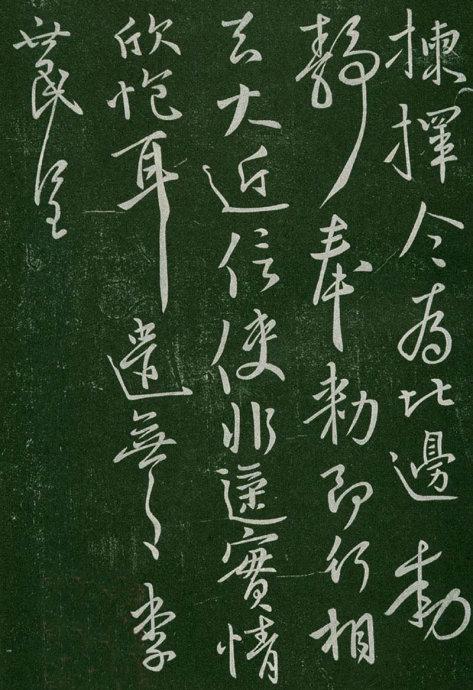 揀擇令為北邊動
静奉勅即行相
去大近信使非遥實情
欣抱耳遣無李
世民呈